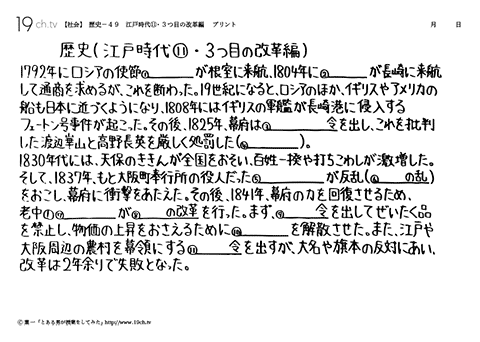 19ch.tv 【社会】 歴史－49 江戸時代⑪・3つ目の改革編 プリント 月 日
歴史(江戸時代⑪・3つ目の改革編)
1792年にロシアの使節①______が根室に来航、1804年に②______が長崎に来航
して通商を求めるが、これを断わった。19世紀になると、ロシアのほか、イギリスやアメリカの
船も日本に近づくようになり、1808年にはイギリスの軍艦が長崎港に侵入する
フェートン号事件が起こった。その後、1825年、幕府は③______令を出し、これを批判
した渡辺華山と高野長英を厳しく処罰した(④______)。
1830年代には、天保のききんが全国をおそい、百姓一揆や打ちこわしが激増した。
そして、1837年、もと大阪町奉行所の役人だった⑤______が反乱(⑥______の乱)
をおこし、幕府に衝撃をあたえた。その後、1841年、幕府の力を回復させるため、
老中の⑦______が⑧______の改革を行った。まず、⑨______令を出してぜいたく品
を禁止し、物価の上昇をおさえるために⑩______を解散させた。また、江戸や
大阪周辺の農村を幕領にする⑪______令を出すが、大名や旗本の反対にあい、
改革は2年余りで失敗となった。
©葉一「とある男が授業をしてみた」http://www.19ch.tv